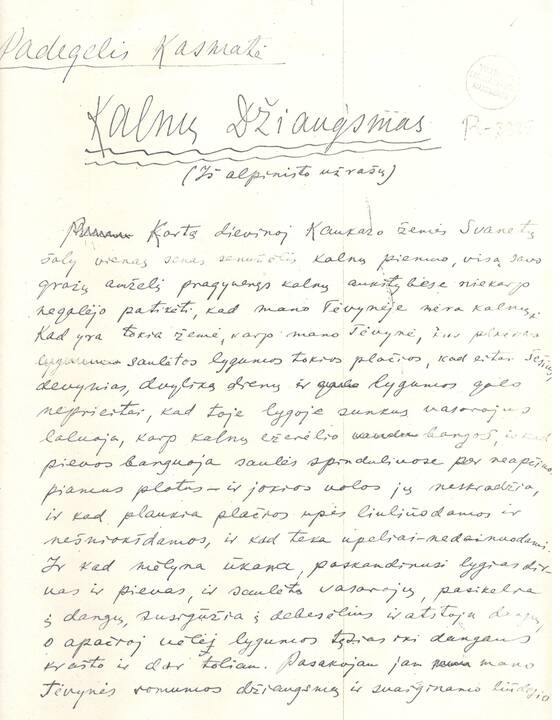 Padegelis Kasmatė
Kalnų Džiaugsmas
R-3035
(Iš alpinisto užrašų)
Kartą dievinoj Kaukazo žemės Svanetų
šaly vienas senas senutėlis kalnų piemuo, visą savo
gražų amželį pragyvenęs kalnų aukštybėse niekaip
negalėjo patikėti, kad mano Tėvynėje nėra kalnų.
Kad yra tokia žemė, kaip mano Tėvynė, kur plačios
saulėtos lygumos tokios plačios, kad eitai šešias,
devynias, dvyliką dienų ir lygumos galo
neprieitai, kad toje lygoje sunkus vasarojus
laluoja, kaip kalnų ežerėlio bangos, ir kad
pievos banguoja saulės spinduliuose per neapžvel
piamus plotus – ir jokios uolos jų neskrodžia,
ir kad plaukia plačios upės liuliuodamos ir
nešniokšdamos, ir kad teka upeliai – nedainuodami.
Ir kad mėlyna ūkana, paskandinusi lygias dir
vas ir pievas, ir saulėtą vasarojų, pasikelia
į dangų, susigūžia į debesėlius ir atstoja dangų,
o apačioj vėlėj lygumos tęsias iki dangaus
krašto ir dar toliau. Pasakojau jam mano
Tėvynės romumos džiaugsmą ir svaiginanio liūdesio